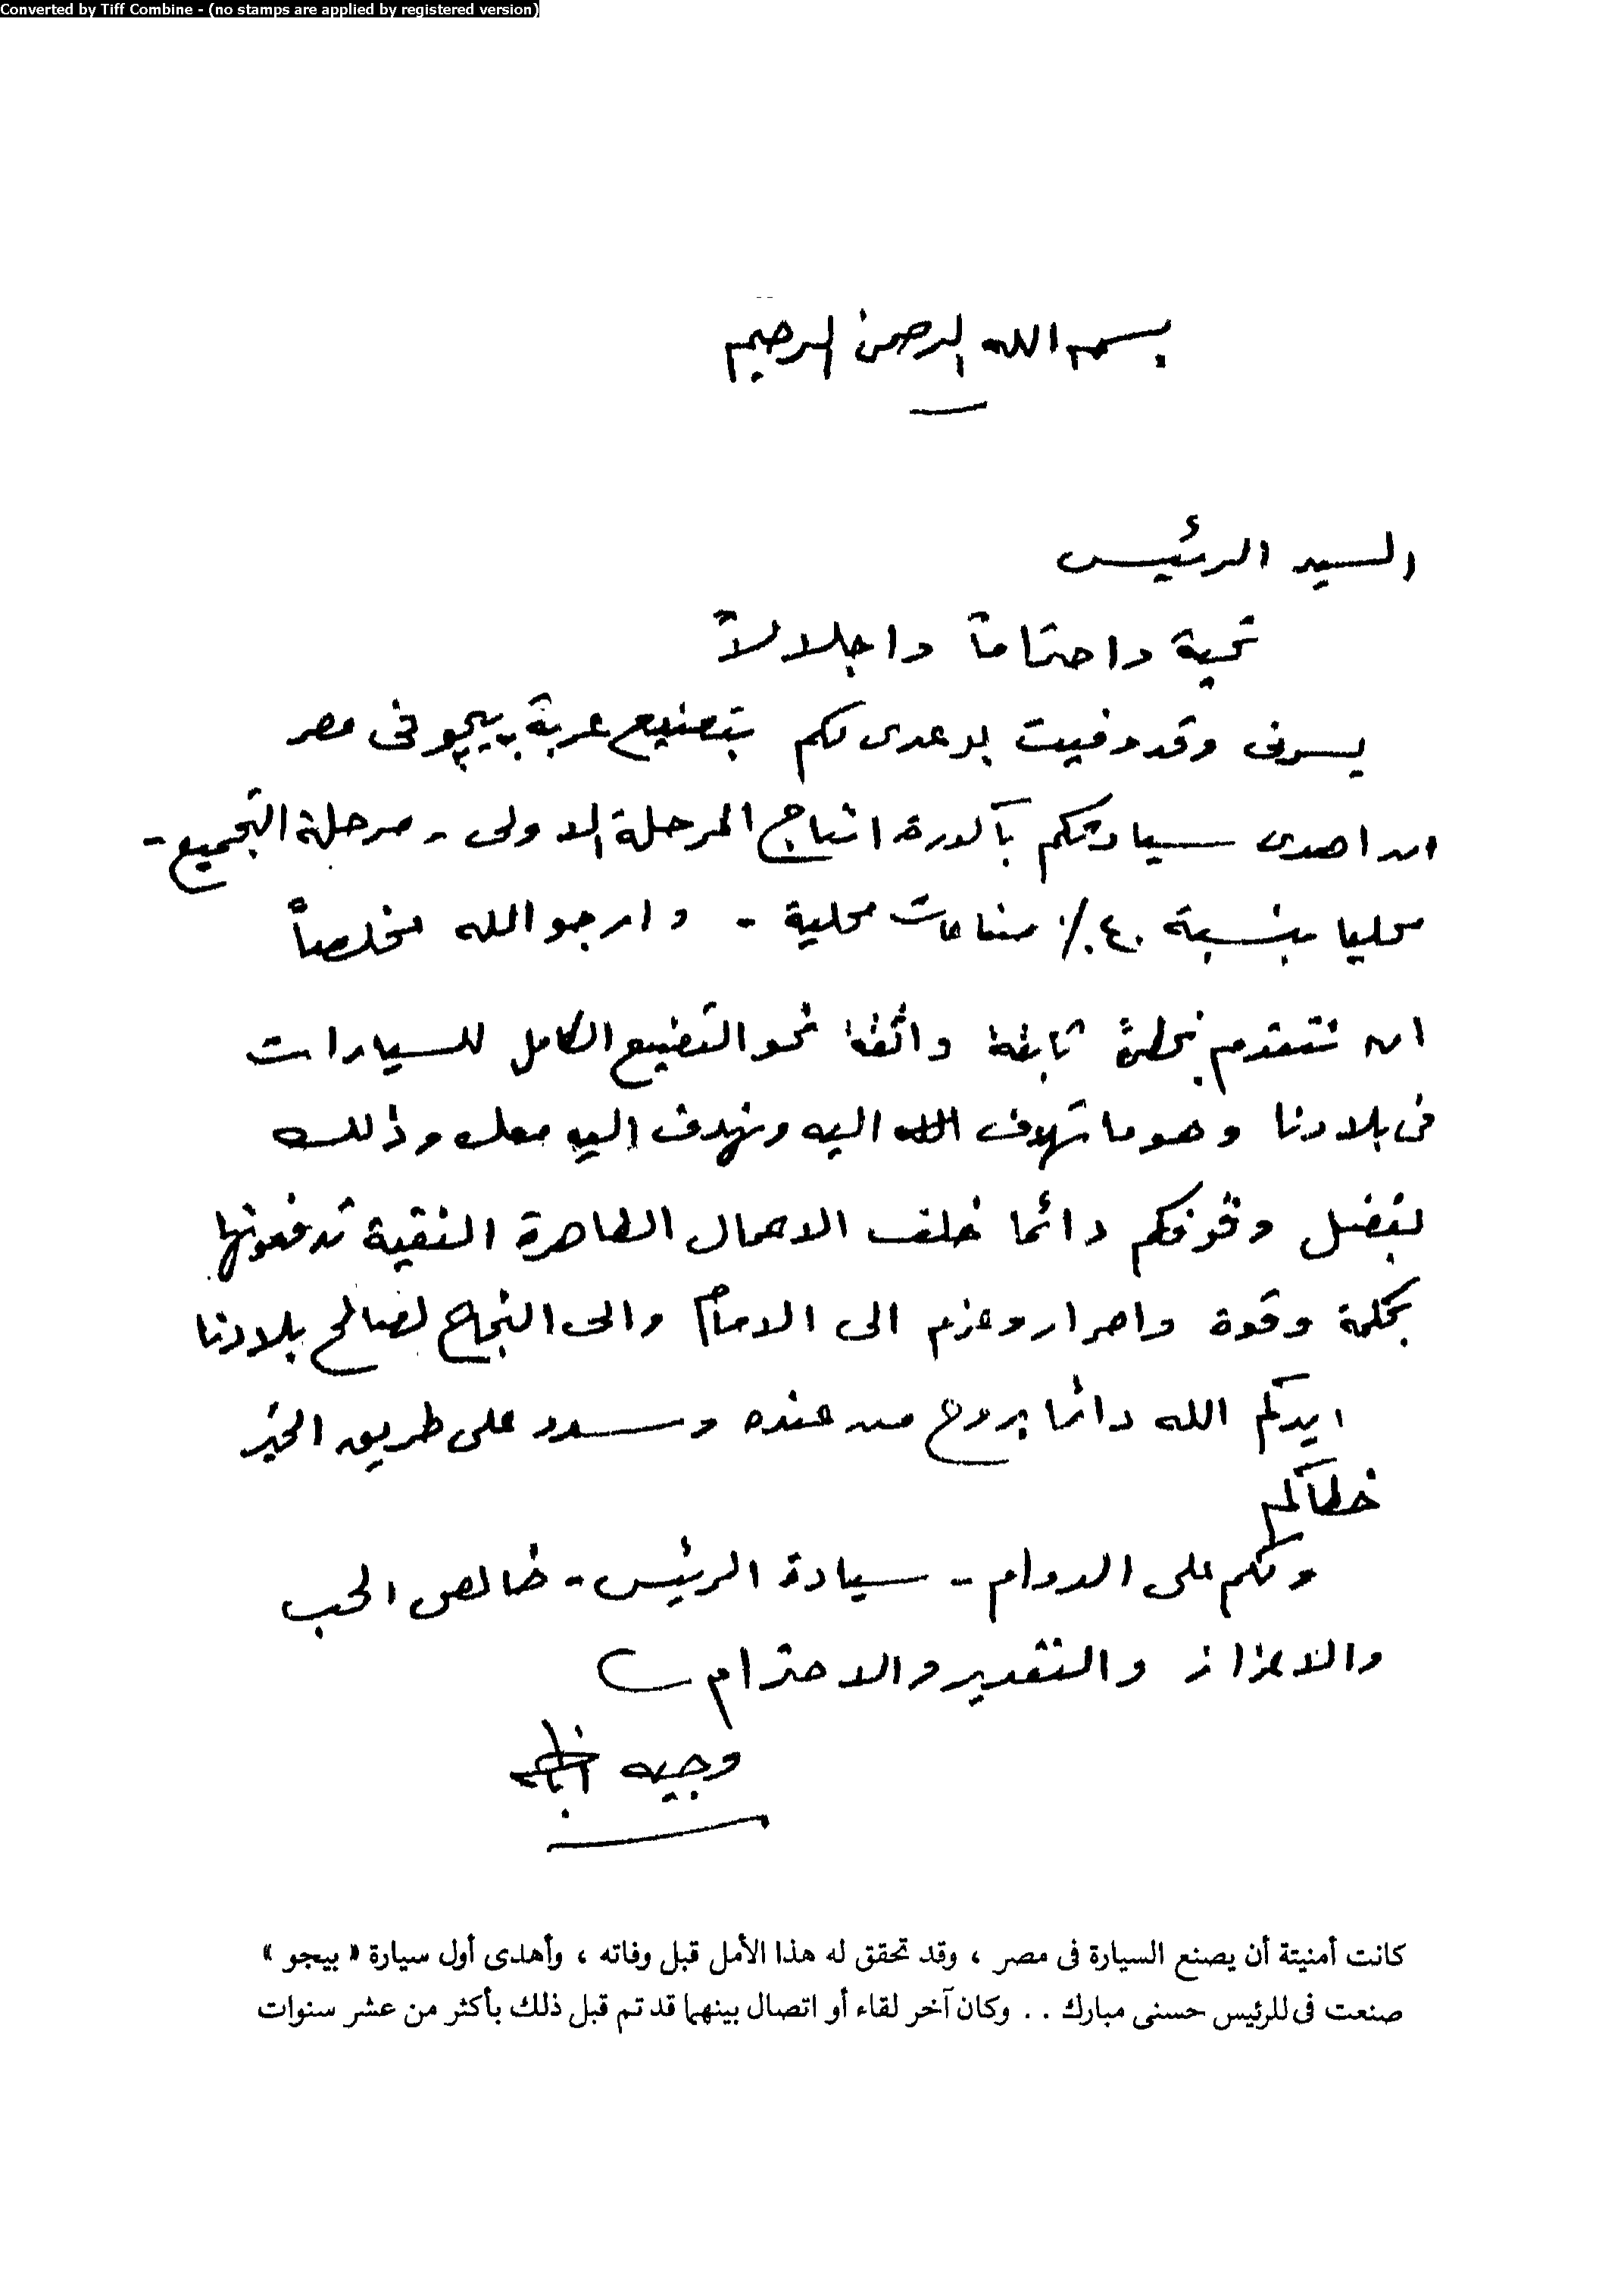 Converted by Tiff Combine - (no stamps are applied by registered version)
بسم الله الرحمن الرحيم
السيد الرئيس
تحية واحتراما واجلالاً
يسرنى وقد وفيت بوعدى لكم بتصنيع عربة بيچو فى مصر
ان اهدى سيادتكم باكورة انتاج المرحلة الاولى - مرحلة التجميع -
محليا بنسبة ٤٠٪ صناعات محلية - وارجو الله مخلصاً
ان نتقدم بخطى ثابتة واثقة نحو التصنيع الكامل للسيارات
فى بلادنا وهو ما تهدف اليه ونهدف اليه معك وذلك
بفضل وقوفكم دائما خلف الاعمال الطاهرة النقية تدفعونها
بحكمة وقوة واصرار وعزم الى الامام والى النجاح لصالح بلادنا
ايدكم الله دائما بروح من عنده وسدد على طريق الخير
خطاكم
ولكم على الدوام - سيادة الرئيس - خالص الحب
والاعزاز والتقدير والاحترام
وجيه اباظه
كانت أمنيتة أن يصنع السيارة فى مصر ، وقد تحقق له هذا الأمل قبل وفاته ، وأهدى أول سيارة « بيجو »
صنعت فى للرئيس حسنى مبارك . . وكان آخر لقاء أو اتصال بينهما قد تم قبل ذلك بأكثر من عشر سنوات